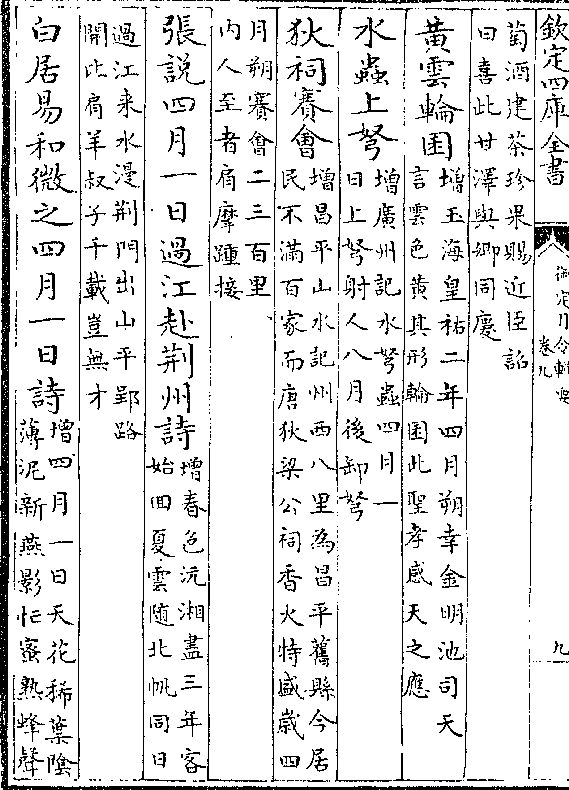 欽定四庫全書
御定月令輯要
卷九
九
萄酒建茶珍果賜近臣詔
曰喜此甘澤與卿同慶
黃雲輪囷增玉海皇祐二年四月朔幸金明池司天
言雲色黃其形輪囷此聖孝感天之應
水蟲上弩增廣州記水弩蟲四月一
日上弩射人八月後卸弩
狄祠賽會增昌平山水記州西八里為昌平舊縣今居
民不滿百家而唐狄梁公祠香火特盛歲四
月朔賽會二三百里
内人至者肩摩踵接
張説四月一日過江赴荆州詩增春色沅湘盡三年客
始回夏雲隨北帆同日
過江来水漫荆門出山平郢路
開比肩羊叔子千載豈無才
白居易和微之四月一日詩增四月一日天花稀葉陰
薄泥新燕影忙蜜熟蜂聲